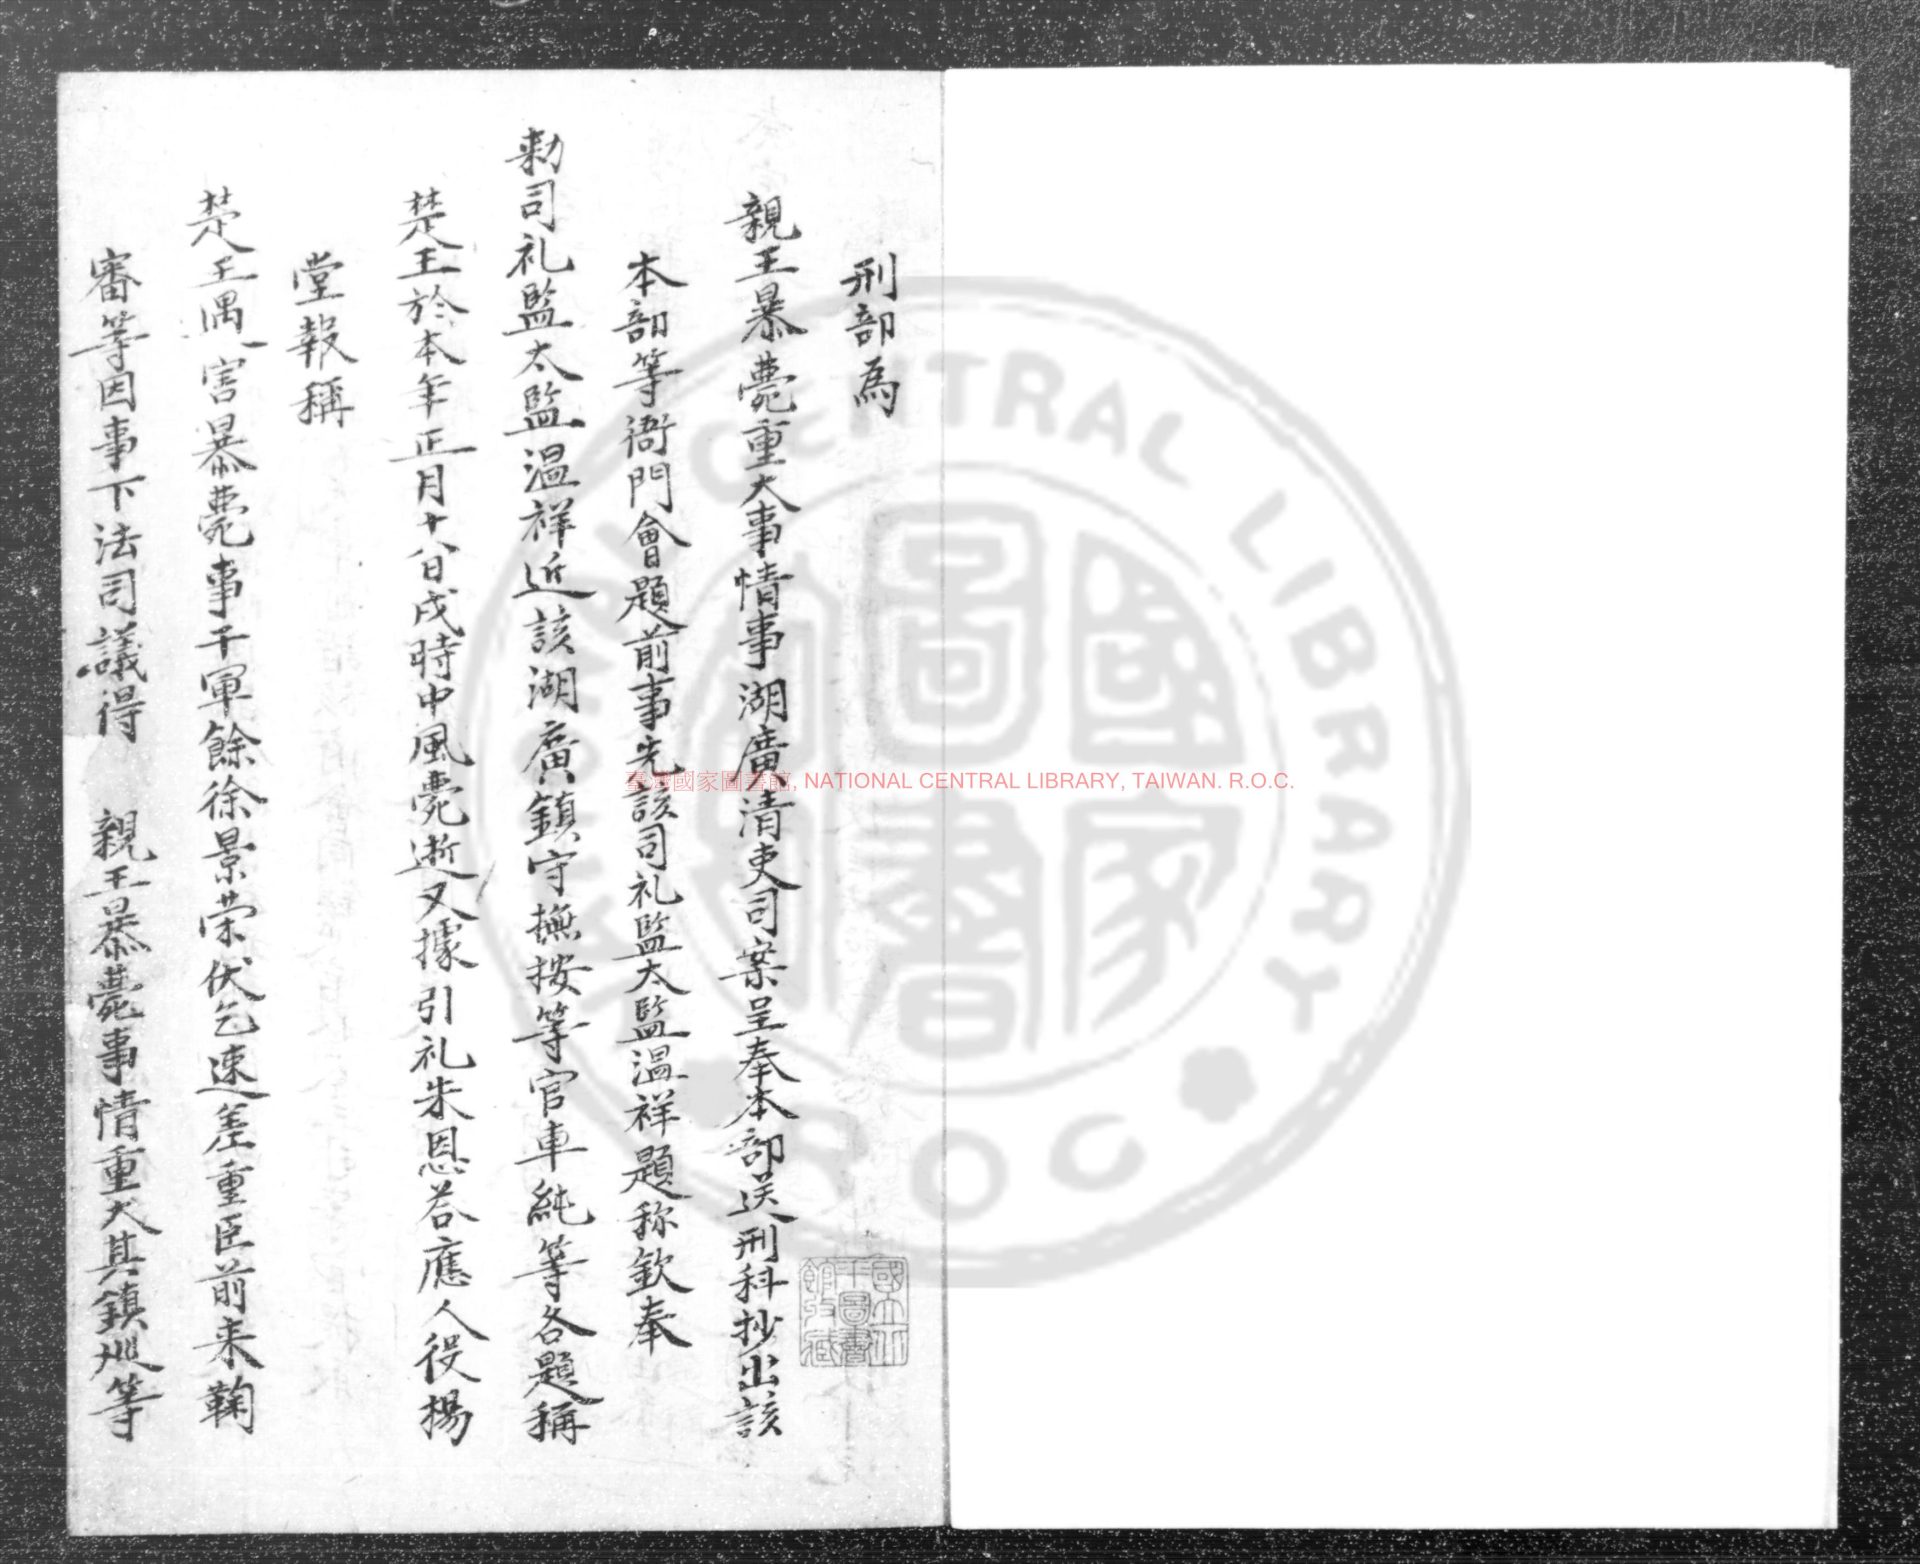 刑部為
親王暴薨重大事情事湖廣清吏司案呈奉本部送刑科抄出該
本部等衙門會題前事先該司礼監太監溫祥題称欽奉
勅司礼監太監溫祥近該湖廣鎮守撫按等官車純等各題稱
楚王於本年正月十八日戌時中風薨逝又據引礼朱恩荅應人役楊
堂報稱
楚王遇害暴薨事干軍餘徐景荣伏乞速差重臣前来鞠
審等因事下法司議得 親王暴薨事情重大其鎮巡等
國立中央圖書館收藏
臺灣國家圖書館, NATIONAL CENTRAL LIBRARY, TAIWAN. R.O.C.
NATIONAL CENTRAL LIBRARY
ROC
國家圖書